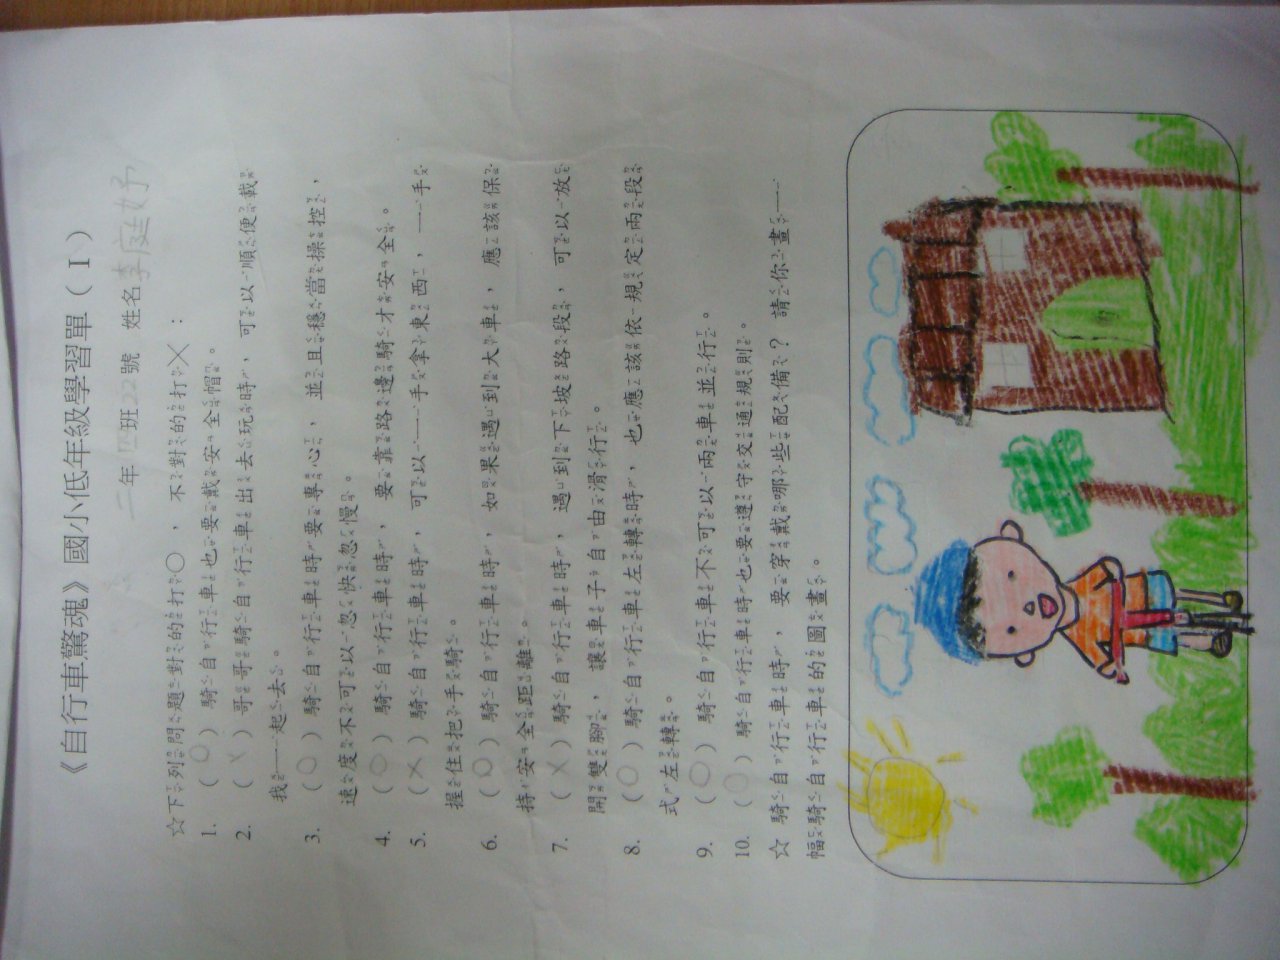 《自行車驚魂》國小低年級學習單（I）
二年四班22號 姓名李庭妤
☆下列問題對的打○，不對的打╳：
1. （○）騎自行車也要戴安全帽。
2. （╳）哥哥騎自行車出去玩時，可以順便載
我一起去。
3. （○）騎自行車時要專心，並且穩當操控，
速度不可以忽快忽慢。
4. （○）騎自行車時，要靠路邊騎才安全。
5. （╳）騎自行車時，可以一手拿東西，一手
握住把手騎。
6. （○）騎自行車時，如果遇到大車，應該保
持安全距離。
7. （╳）騎自行車時，遇到下坡路段，可以放
開雙腳，讓車子自由滑行。
8. （○）騎自行車左轉時，也應該依規定兩段
式左轉。
9. （○）騎自行車不可以兩車並行。
10. （○）騎自行車時也要遵守交通規則。
☆ 騎自行車時，要穿戴哪些配備？請你畫一
幅騎自行車的圖畫。